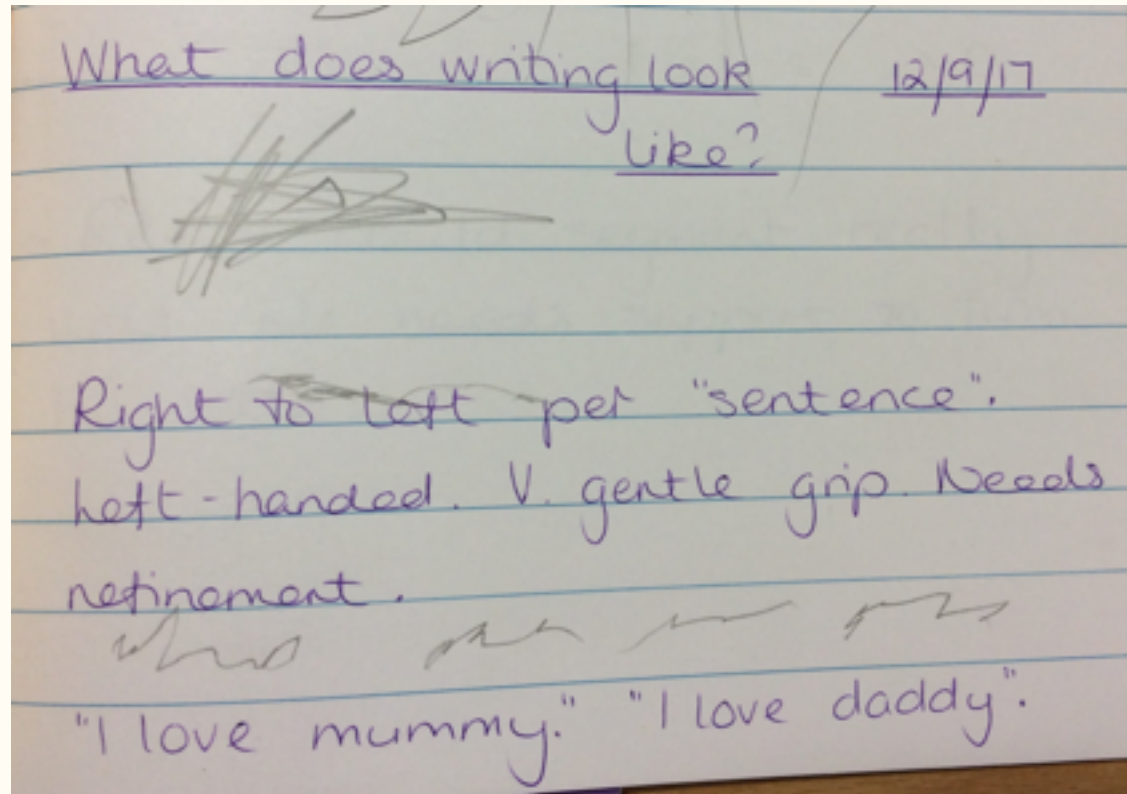 What does writing look 12/9/17
like?
Right to left per "sentence".
Left-handed. V. gentle grip. Needs
refinement.
"I love mummy." "I love daddy".